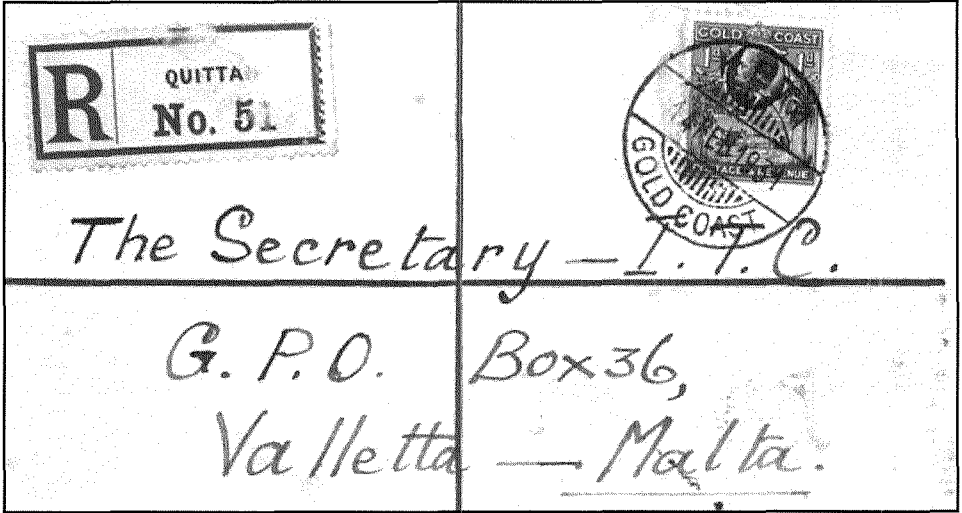 R
QUITTA
No. 51
GOLD COAST
1D 1D
GOLD COAST
The Secretary — I.T.C.
G.P.O. Box 36,
Valletta — Malta.